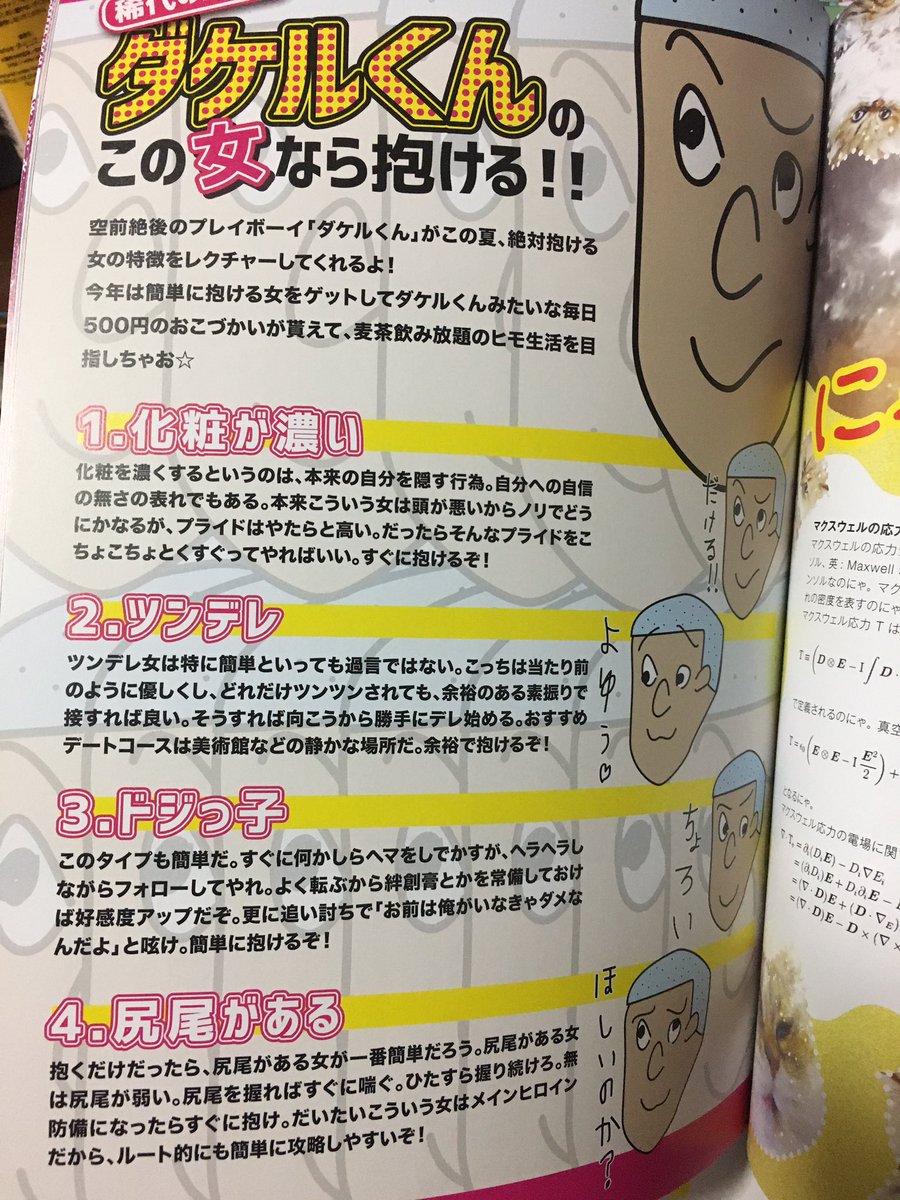 稀代の
ダケルくんの
この女なら抱ける!!
空前絶後のプレイボーイ「ダケルくん」がこの夏、絶対抱ける
女の特徴をレクチャーしてくれるよ!
今年は簡単に抱ける女をゲットしてダケルくんみたいな毎日
500円のおこづかいが貰えて、麦茶飲み放題のヒモ生活を目
指しちゃお☆
1.化粧が濃い
化粧を濃くするというのは、本来の自分を隠す行為。自分への自信
の無さの表れでもある。本来こういう女は頭が悪いからノリでどう
にかなるが、プライドはやたらと高い。だったらそんなプライドをこ
ちょこちょとくすぐってやればいい。すぐに抱けるぞ!
だける!!
2.ツンデレ
ツンデレ女は特に簡単といっても過言ではない。こっちは当たり前
のように優しくし、どれだけツンツンされても、余裕のある素振りで
接すれば良い。そうすれば向こうから勝手にデレ始める。おすすめ
デートコースは美術館などの静かな場所だ。余裕で抱けるぞ!
よゆう♡
3.ドジっ子
このタイプも簡単だ。すぐに何かしらヘマをしでかすが、ヘラヘラし
ながらフォローしてやれ。よく転ぶから絆創膏とかを常備しておけ
ば好感度アップだぞ。更に追い討ちで「お前は俺がいなきゃダメな
んだよ」と呟け。簡単に抱けるぞ!
ちょろい
4.尻尾がある
抱くだけだったら、尻尾がある女が一番簡単だろう。尻尾がある女
は尻尾が弱い。尻尾を握ればすぐに喘ぐ。ひたすら握り続けろ。無
防備になったらすぐに抱け。だいたいこういう女はメインヒロイン
だから、ルート的にも簡単に攻略しやすいぞ!
ほしいのか?
に
マクスウェルの応力
マクスウェルの応力
ソル、英:Maxwell
ンソルなのにゃ。マク
れの密度を表すのにゃ
マクスウェル応力 T は
T≡(D⊗E−I∫D・
で定義されるのにゃ。真空
T=ε₀(E⊗E−I E²/2)+
となるにゃ。
マクスウェル応力の電場に関
∇・Tₑ=∂ᵢ(DᵢE)−Dᵢ∇Eᵢ
=(∂ᵢDᵢ)E+Dᵢ∂ᵢE−
=(∇・D)E+(D・∇
=(∇・D)E−D×(∇×